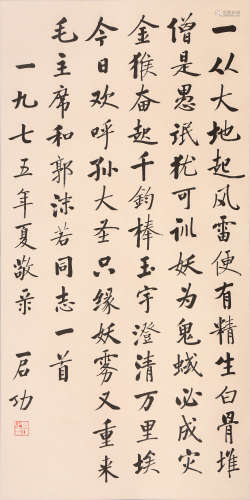 一从大地起风雷便有精生白骨堆
僧是愚氓犹可训妖为鬼蜮必成灾
金猴奋起千钧棒玉宇澄清万里埃
今日欢呼孙大圣只缘妖雾又重来
毛主席和郭沫若同志一首
一九七五年夏敬录
启功